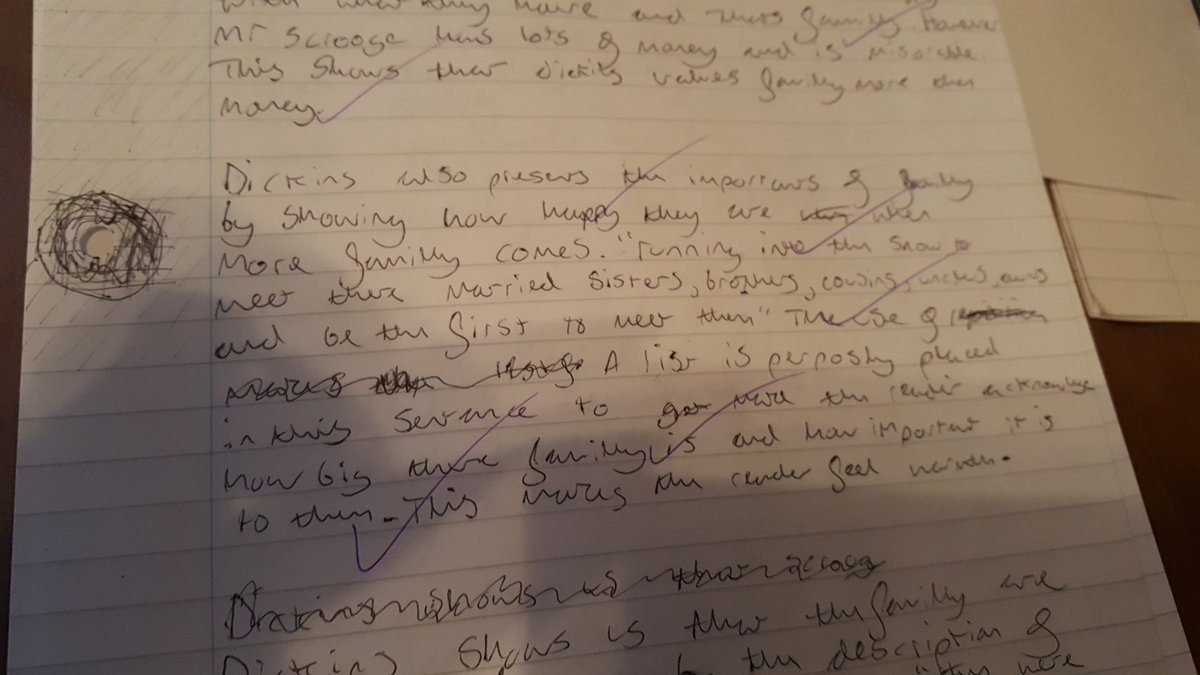 when what they have and theres familly. However
Mr Scrooge has lots of money and is misorable.
This shows that Dickins values familly more then
money.
Dickins also presents the importans of familly
by showing how happy they are when
more familly comes. "running into the snow to
meet there married sisters, brothers, cousins, uncles, aunts
and be the first to meet them" The use of
A list is perposly placed
in this sentence to make the reader acknowlage
how big there familly is and how important it is
to them. This makes the reader feel warmth.
Dickins shows is that the familly are
the description of
here